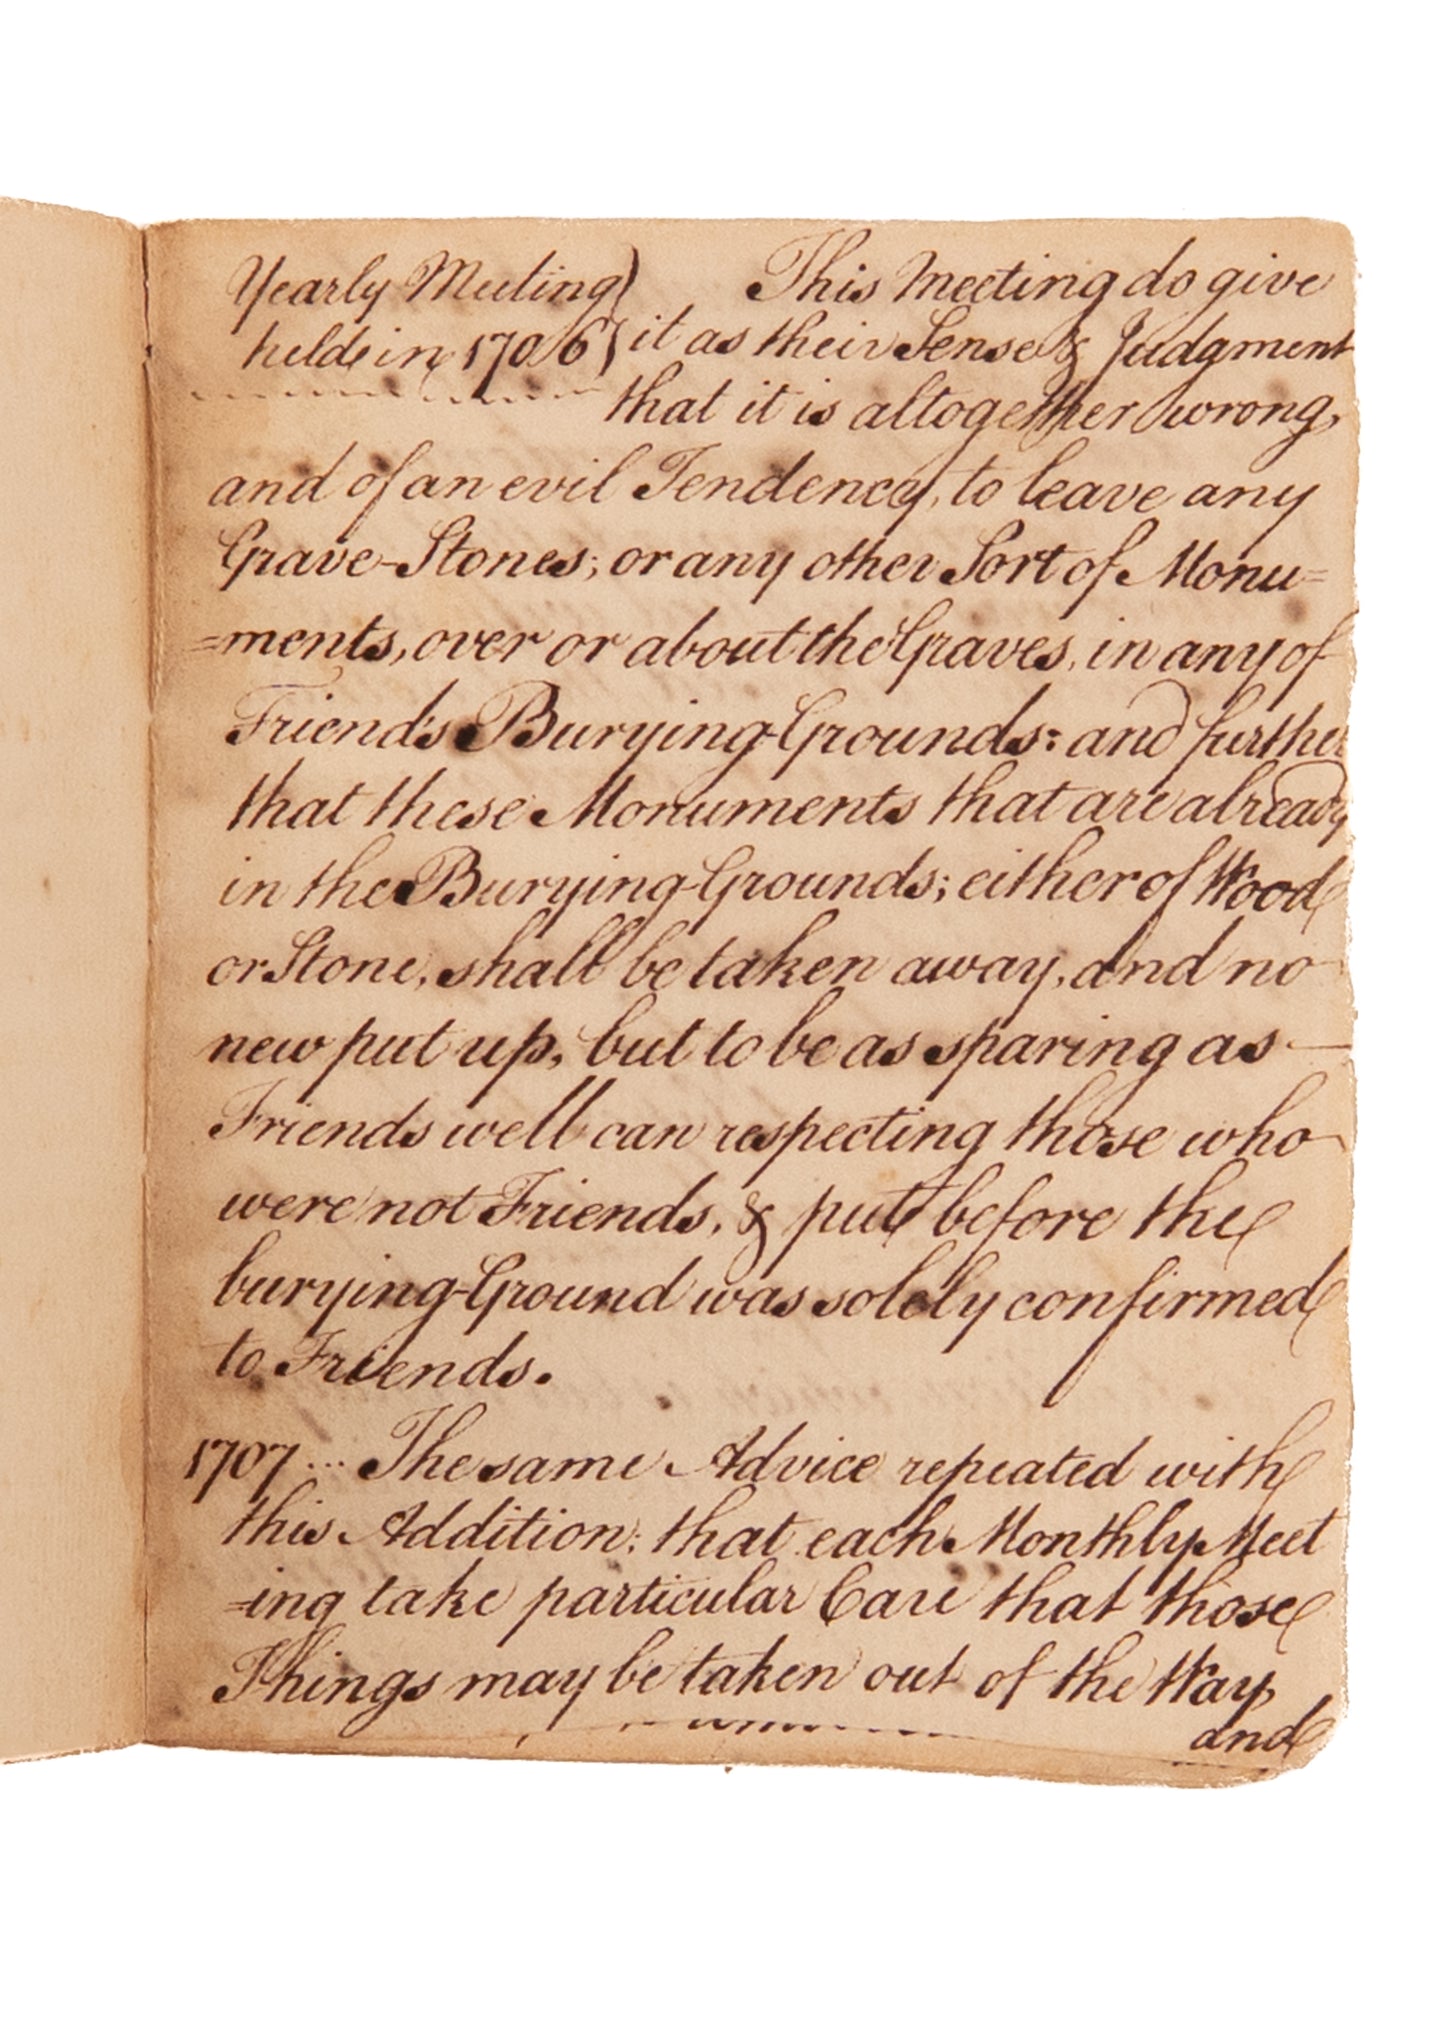 Yearly Meeting } This Meeting do give
held in 1706 } it as their Sense & Judgment
that it is altogether wrong,
and of an evil Tendency, to leave any
Grave-Stones; or any other Sort of Monu=
=ments, over or about the Graves, in any of
Friend's Burying-Grounds: and further
that these Monuments that are already
in the Burying-Grounds; either of Wood
or Stone, shall be taken away, and no
new put up, but to be as sparing as
Friends well can respecting those who
were not Friends, & put before the
burying-Ground was solely confirmed
to Friends.
1707 ... The same Advice repeated with
this Addition: that each Monthly Meet
=ing take particular Care that those
Things may be taken out of the Way,
and